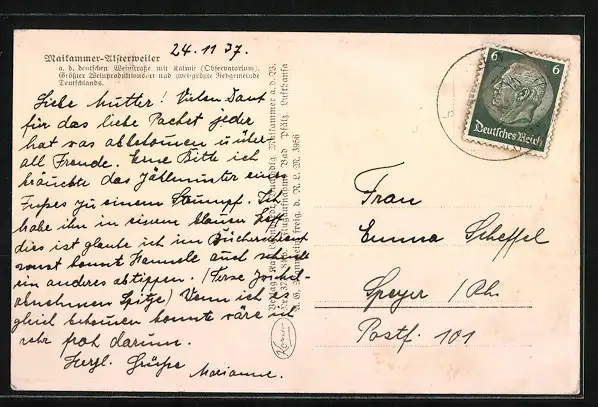 24.11.37.
Maikammer-Alsterweiler
a. d. deutschen Weinstraße mit Kalmit (Observatorium),
Größter Weinproduktionsort und zweitgrößte Rebgemeinde
Deutschlands.
Liebe Mutter! Vielen Dank
für das liebe Packet jeder
hat was abbekommen u. über
all Freude. Eine Bitte ich
bräuchte das Zählmuster eines
Fußes zu einem Strumpf. Ich
habe ihn in einem blauen Heft
dies ist glaube ich im Bücherschrank
sonst kannt Hannele auch
ein anderes abtippen. (Ferse
abnehmen Spitze) Wenn ich es
gleich bekommen könnte wäre ich
sehr froh darum.
Herzl. Grüße
Marianne.
Verlag: Maikammer a. d. W.
Nr. 37 Flugaufnahme Bad Pfälz. Lufthansa
A. G. Mannheim freig. d. R. L. M. 3986
6 6
Deutsches Reich
Frau
Emma Scheffel
Speyer /Rh.
Postf. 101